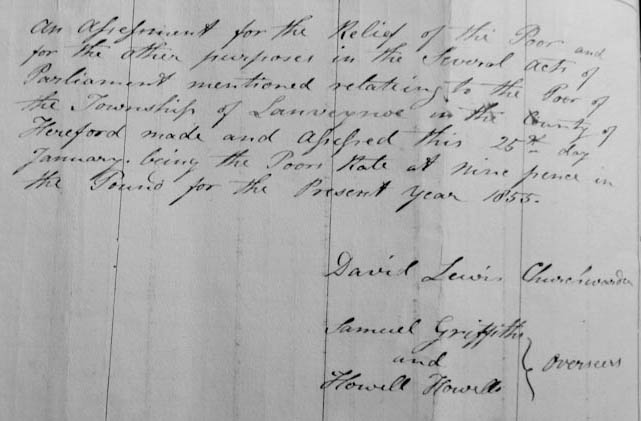 An Assessment for the Relief of the Poor and
for the other purposes in the Several Acts of
Parliament mentioned relating to the Poor of
the Township of Lanveynoe in the County of
Hereford made and Assessed this 25th day
January. being the Poors Rate at nine pence in
the Pound for the Present Year 1855.
David Lewis Churchwarden
Samuel Griffiths
and
Howell Howells
Overseers